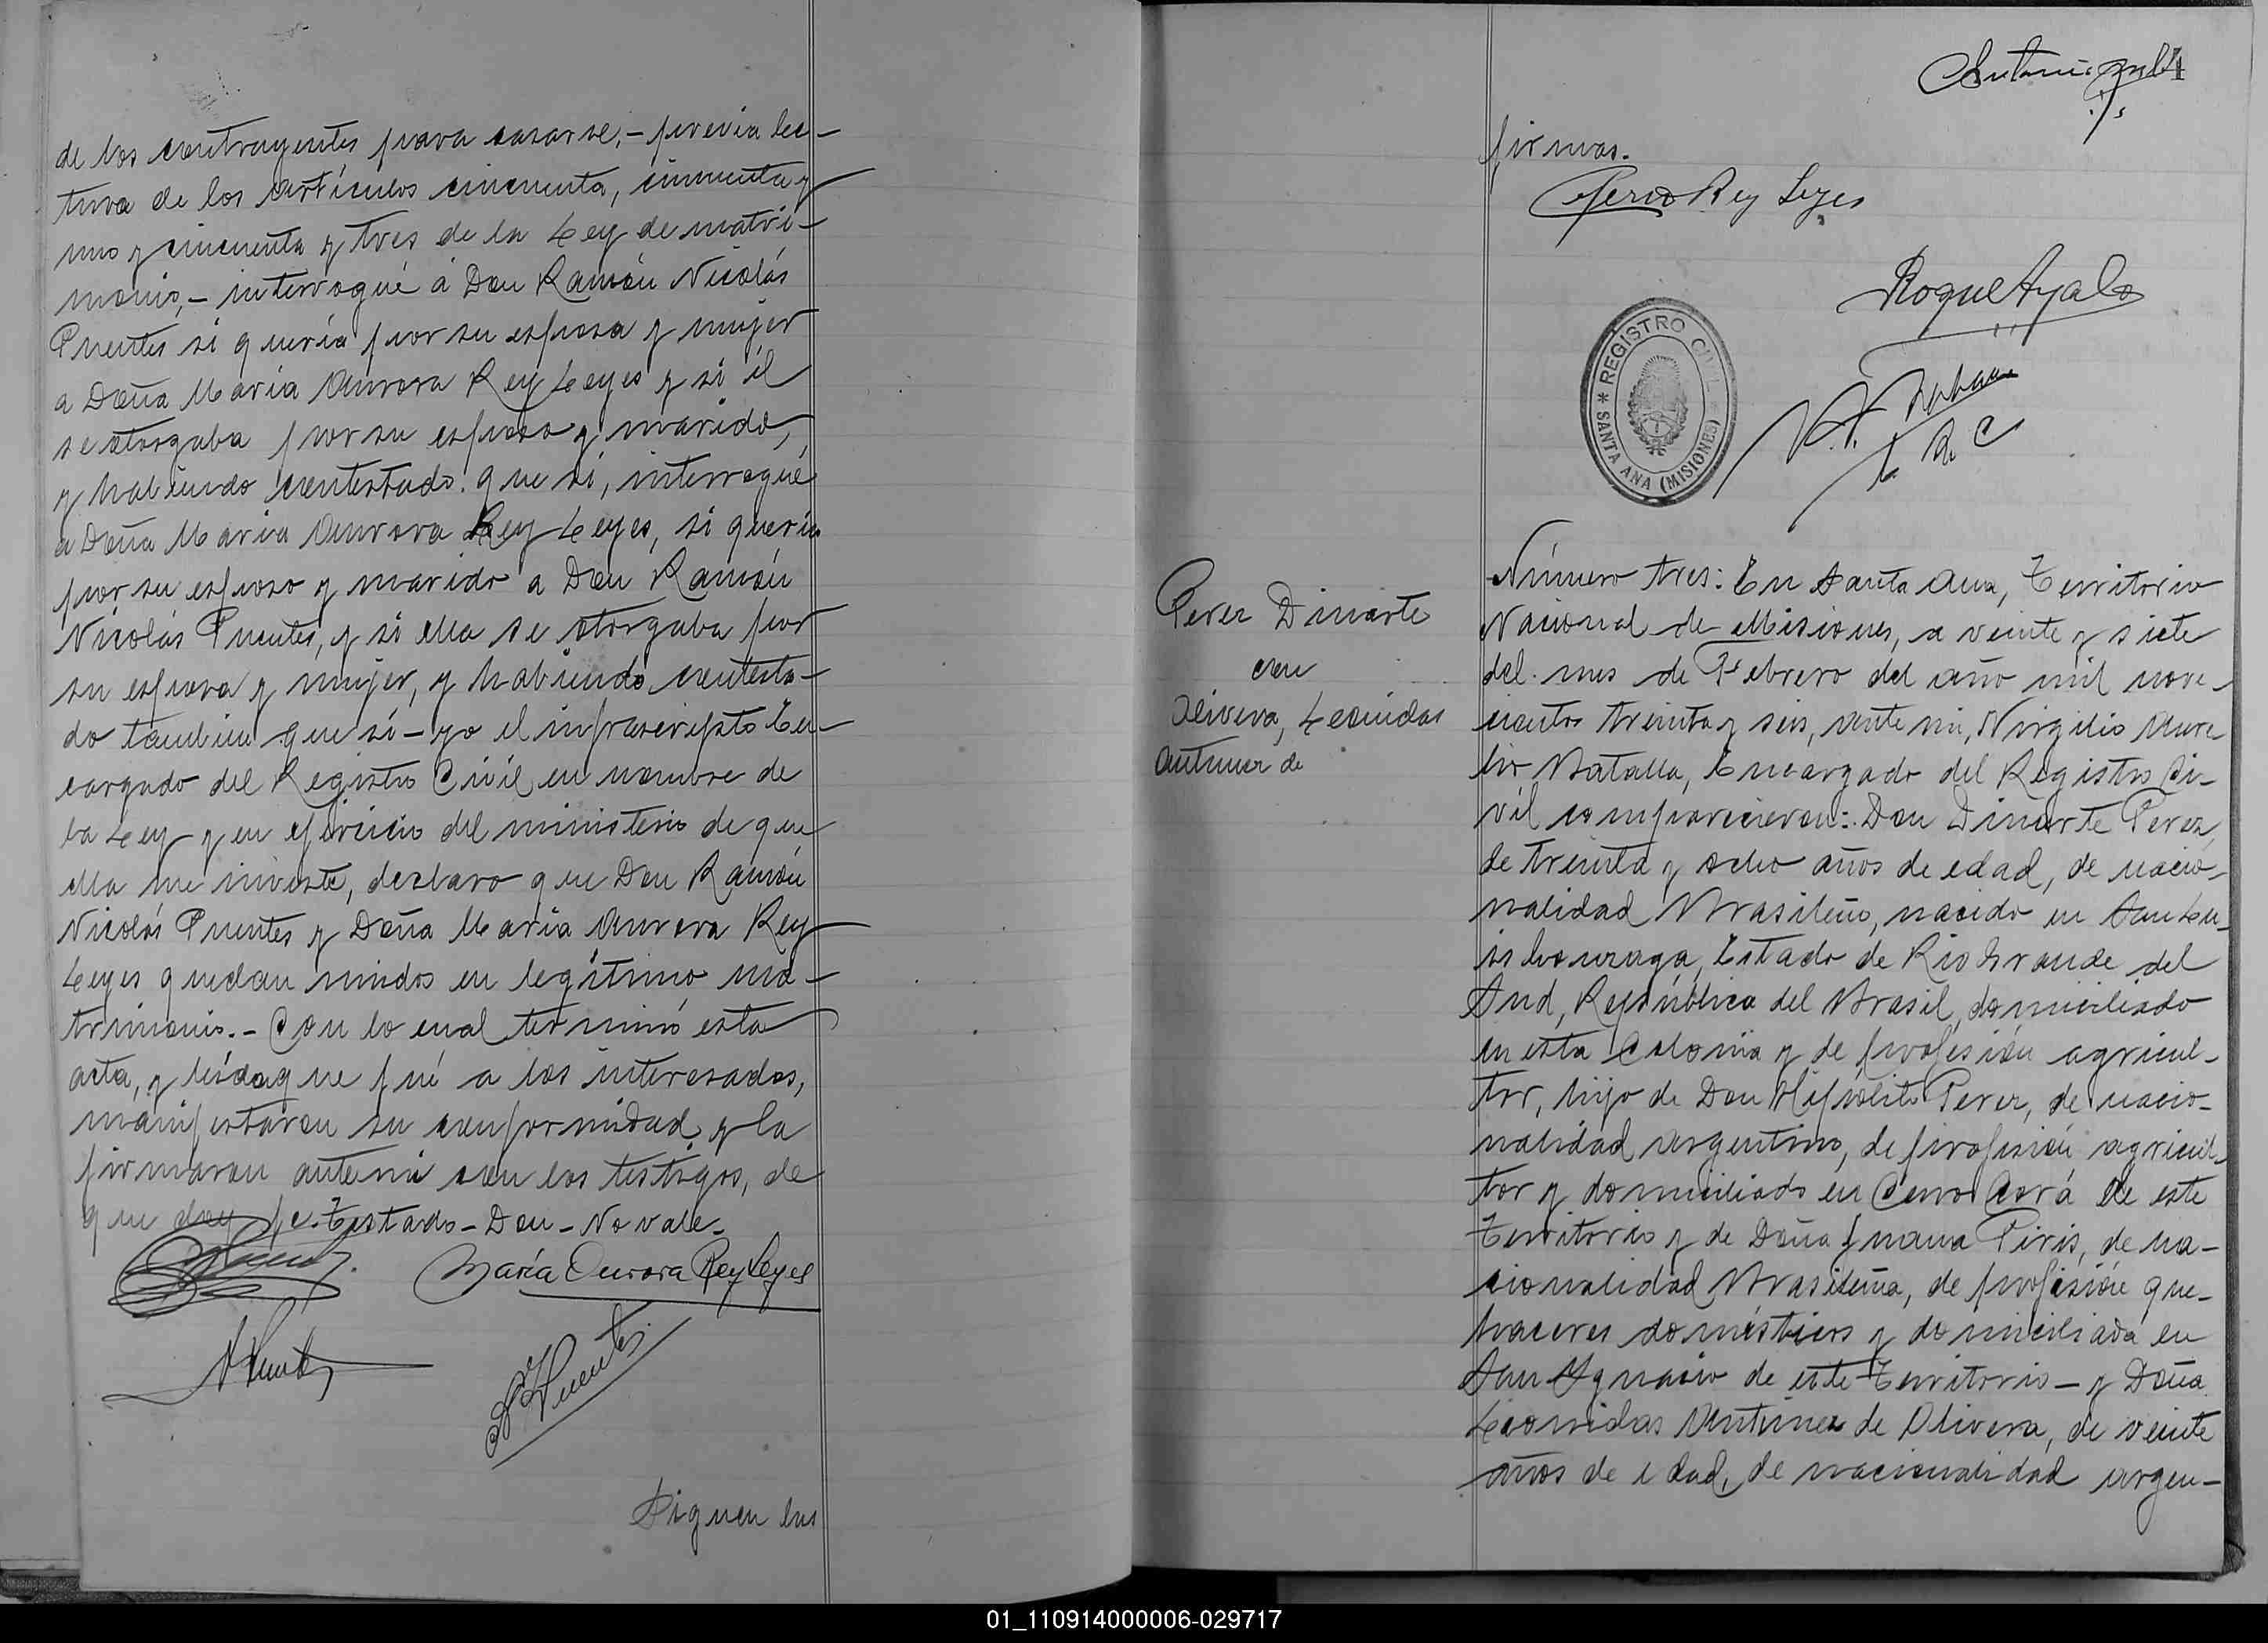 de los contrayentes para casarse,- previa lec-
tura de los artículos cincuenta, cincuenta y
uno y cincuenta y tres de la Ley de matri-
monio,- interrogué á Don Ramón Nicolás
Puentes si quería por su esposa y mujer
a Doña María Aurora Rey Leyes y si él
se otorgaba por su esposo y marido,
y habiendo contestado que sí, interrogué
a Doña María Aurora Rey Leyes, si quería
por su esposo y marido a Don Ramón
Nicolás Puentes, y si ella se otorgaba por
su esposa y mujer, y habiendo contesta-
do tambien que sí - yo el infrascripto En-
cargado del Registro Civil en nombre de
la Ley y en ejercicio del ministerio de que
ella me inviste, declaro que Don Ramón
Nicolás Puentes y Doña María Aurora Rey
Leyes quedan unidos en legítimo ma-
trimonio.- Con lo cual terminó esta
acta, y leída que fué a los interesados,
manifestaron su conformidad y la
firmaron ante mí con los testigos, de
que doy fe. Testado - Don - No vale -
María Aurora Rey Leyes
Puentes
Siguen las
firmas.
Rey Leyes
Roque Ayala
REGISTRO CIVIL
SANTA ANA (MISIONES)
Perez Dinarte
con
Olivera, Leonidas
Antunez de
Número tres: En Santa Ana, Territorio
Nacional de Misiones, a veinte y siete
del mes de Febrero del año mil nove-
cientos treinta y seis, ante mí, Virgilio Aure
lio Batalla, Encargado del Registro Ci-
vil comparecieron: Don Dinarte Perez,
de treinta y ocho años de edad, de nacio-
nalidad Brasileño, nacido en San Lu-
is Gonzaga, Estado de Rio Grande del
Sud, República del Brasil, domiciliado
en esta Colonia y de profesión agricul-
tor, hijo de Don Hipólito Perez, de nacio-
nalidad argentino, de profesión agricul-
tor y domiciliado en Cerro Corá de este
Territorio y de Doña Juana Piris, de na-
cionalidad Brasileña, de profesión que-
haceres domésticos y domiciliada en
San Ygnacio de este Territorio - y Doña
Leonidas Antunez de Olivera, de veinte
años de edad, de nacionalidad argen-
01_110914000006-029717